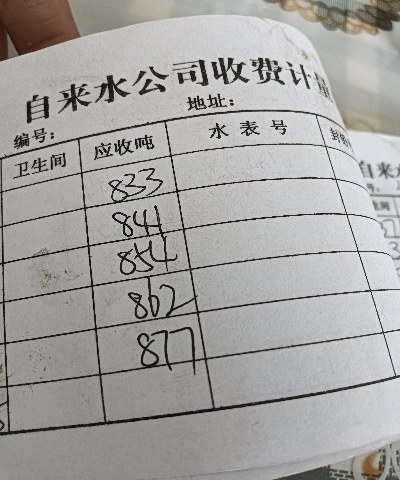 自来水公司收费计量
编号: 地址:
卫生间 应收吨 水表号
833
841
854
862
877
自来